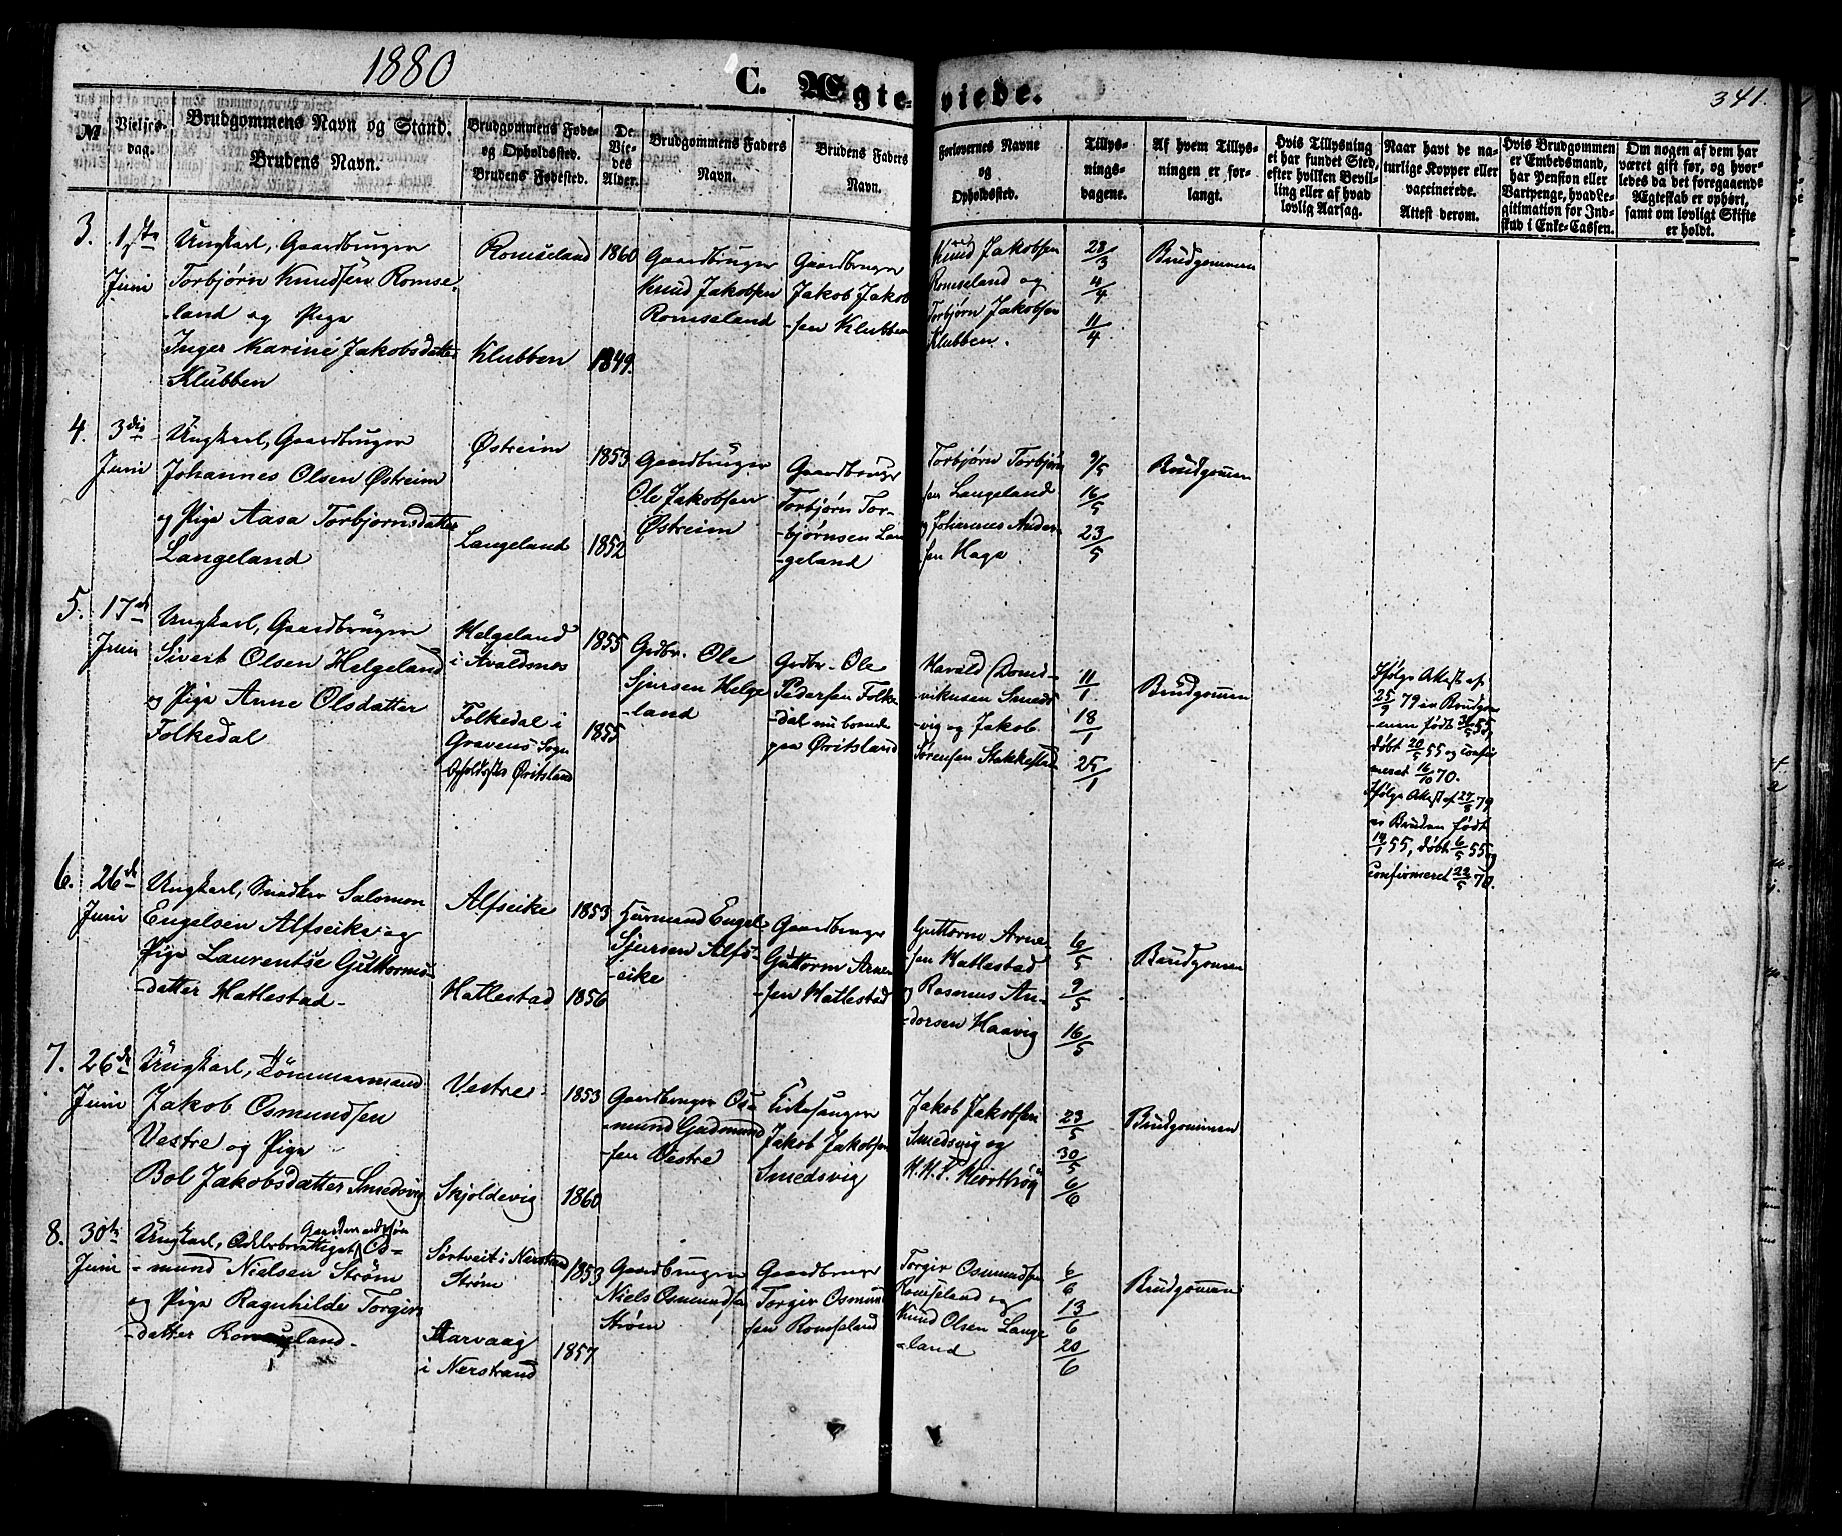 1880
C. Ægte-viede.
341.
№
Vielses-
dag.
Brudgommens Navn og Stand.
Brudens Navn.
Brudgommens Føde-
og Opholdssted.
Brudens Fødested.
De
Vie-
des
Alder.
Brudgommens Faders
Navn.
Brudens Faders
Navn.
Forlovernes Navne
og
Opholdssted.
Tillys-
nings-
dagene.
Af hvem Tillys-
ningen er for-
langt.
Hvis Tillysning
ei har fundet Sted,
efter hvilken Bevil-
ling eller af hvad
lovlig Aarsag.
Naar havt de na-
turlige Kopper eller
vaccinerede.
Attest derom.
Hvis Brudgommen
er Embedsmand,
har Pension eller
Vartpenge, hvad Le-
gitimation for Ind-
skud i Enke-Cassen.
Om nogen af dem har
været gift før, og hvor-
ledes da det foregaaende
Ægteskab er ophørt,
samt om lovligt Skifte
er holdt.
3.
1ste
Juni
Ungkarl, Gaardbruger
Torbjørn Knudsen Romse-
-land og Pige
Inger Karine Jakobsdatter
Klubben
Romseland
Klubben
1860
1849.
Gaardbruger
Knud Jakobsen
Romseland
Gaardbruger
Jakob Jakob
-sen Klubben
Knud Jakobsen
Romseland og
Torbjørn Jakobsen
Klubben.
23/3
4/4
11/4
Brudgommen
4.
3die
Juni
Ungkarl, Gaardbruger
Johannes Olsen Østreim
og Pige Aasa Torbjørnsdatter
Langeland
Østreim
Langeland
1853
1852
Gaardbruger
Ole Jakobsen
Østreim
Gaardbruger
Torbjørn Tor-
-bjørnsen Lan
-geland
Torbjørn Torbjørn
sen Langeland
og Johannes Ander-
sen Hage
9/5
16/5
23/5
Brudgommen
5.
17de
Juni
Ungkarl, Gaardbruger
Sivert Olsen Helgeland
og Pige Anne Olsdatter
Folkedal
Helgeland
i Avaldsnes
Folkedal i
Gravens Sogn
Opholdssted Øritsland
1855
1855
Grdbr. Ole
Sjursen Helge
-land
Grdbr. Ole
Pedersen Folke
-dal nu boende
paa Øritsland
Harald Domd-
-vikusen Smeds
-vig og Jakob
Sørensen Stakkestad
11/1
18/1
25/1
Brudgommen
Ifølge Attest af
25/9 79 er Brudgom
-men født 3/5 55,
døbt 20/5 55 og confir
meret 16/10 70.
Ifølge Attest af 27/8 79
er Bruden født
19/1 55, døbt 6/5 55 og
confirmeret 22/5 70.
6.
26de
Juni
Ungkarl, Snedker Salomon
Engelsen Alfseike og
Pige Laurentse Guttorms-
-datter Hatlestad-
Alfseike
Hatlestad
1853
1856
Huusmand Engel
Sjursen Alfs-
-eike
Gaardbruger
Guttorm Arne-
-sen Hatlestad
Guttorm Arne-
-sen Hatlestad
og Rasmus An-
-dersen Haavig
6/5
9/5
16/5
Brudgommen
7.
26de
Juni
Ungkarl, Tømmermand
Jakob Osmundsen
Vestre og Pige
Bol Jakobsdatter Smedsvig
Vestre
Skjoldevig
1853
1860
Gaardbruger Os-
-mund Gudmund
-sen Vestre
Kirkesanger
Jakob Jakobsen
Smedsvig
Jakob Jakobsen
Smedsvig og
23/5
30/5
6/6
Brudgommen
8.
30te
Juni
Gaardmandssøn
Ungkarl, Odelsberettiget Os-
-mund Nielsen Strøm
og Pige Ragnhilde Torgirs
-datter Romseland-
Sørtveit i Nerstrand
Strøm
Aarvaag
i Nerstrand
1853
1857
Gaardbruger
Niels Osmundsen
Strøm
Gaardbruger
Torgir Osmund
-sen Romseland
Torgir Osmundsen
Romseland og
Knud Olsen Lange
-land
6/6
13/6
20/6
Brudgommen